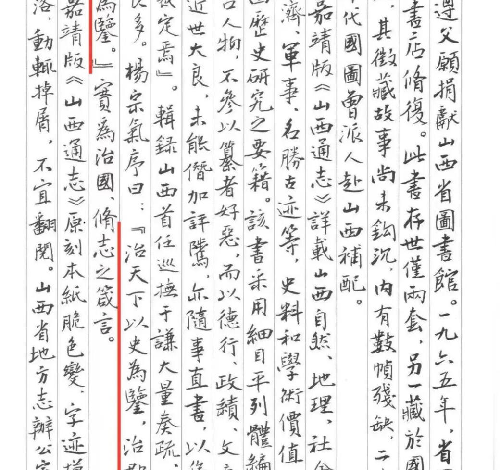 遵父願捐獻山西省圖書館。一九六五年，省
書店脩復。此書存世僅兩套，另一藏於國
其徵藏故事尚未鈎沉，内有數幀殘缺，二
代國圖曾派人赴山西補配。
嘉靖版《山西通志》詳載山西自然、地理、社會
濟、軍事、名勝古迹等，史料和學術價值
歷史研究之要籍。該書采用細目平列體編
古人物，不參以纂者好惡，而以德行、政績、文
近世大良，未能僭加評騭，亦隨事直書，以
定焉』。輯録山西首任巡撫于謙大量奏疏，
良多。楊宗氣序曰：『治天下以史為鑒，治郡
為鑒。』實爲治國、脩志之箴言。
嘉靖版《山西通志》原刻本紙脆色變，字迹模
落，動輒掉屑，不宜翻閲。山西省地方志辦公室